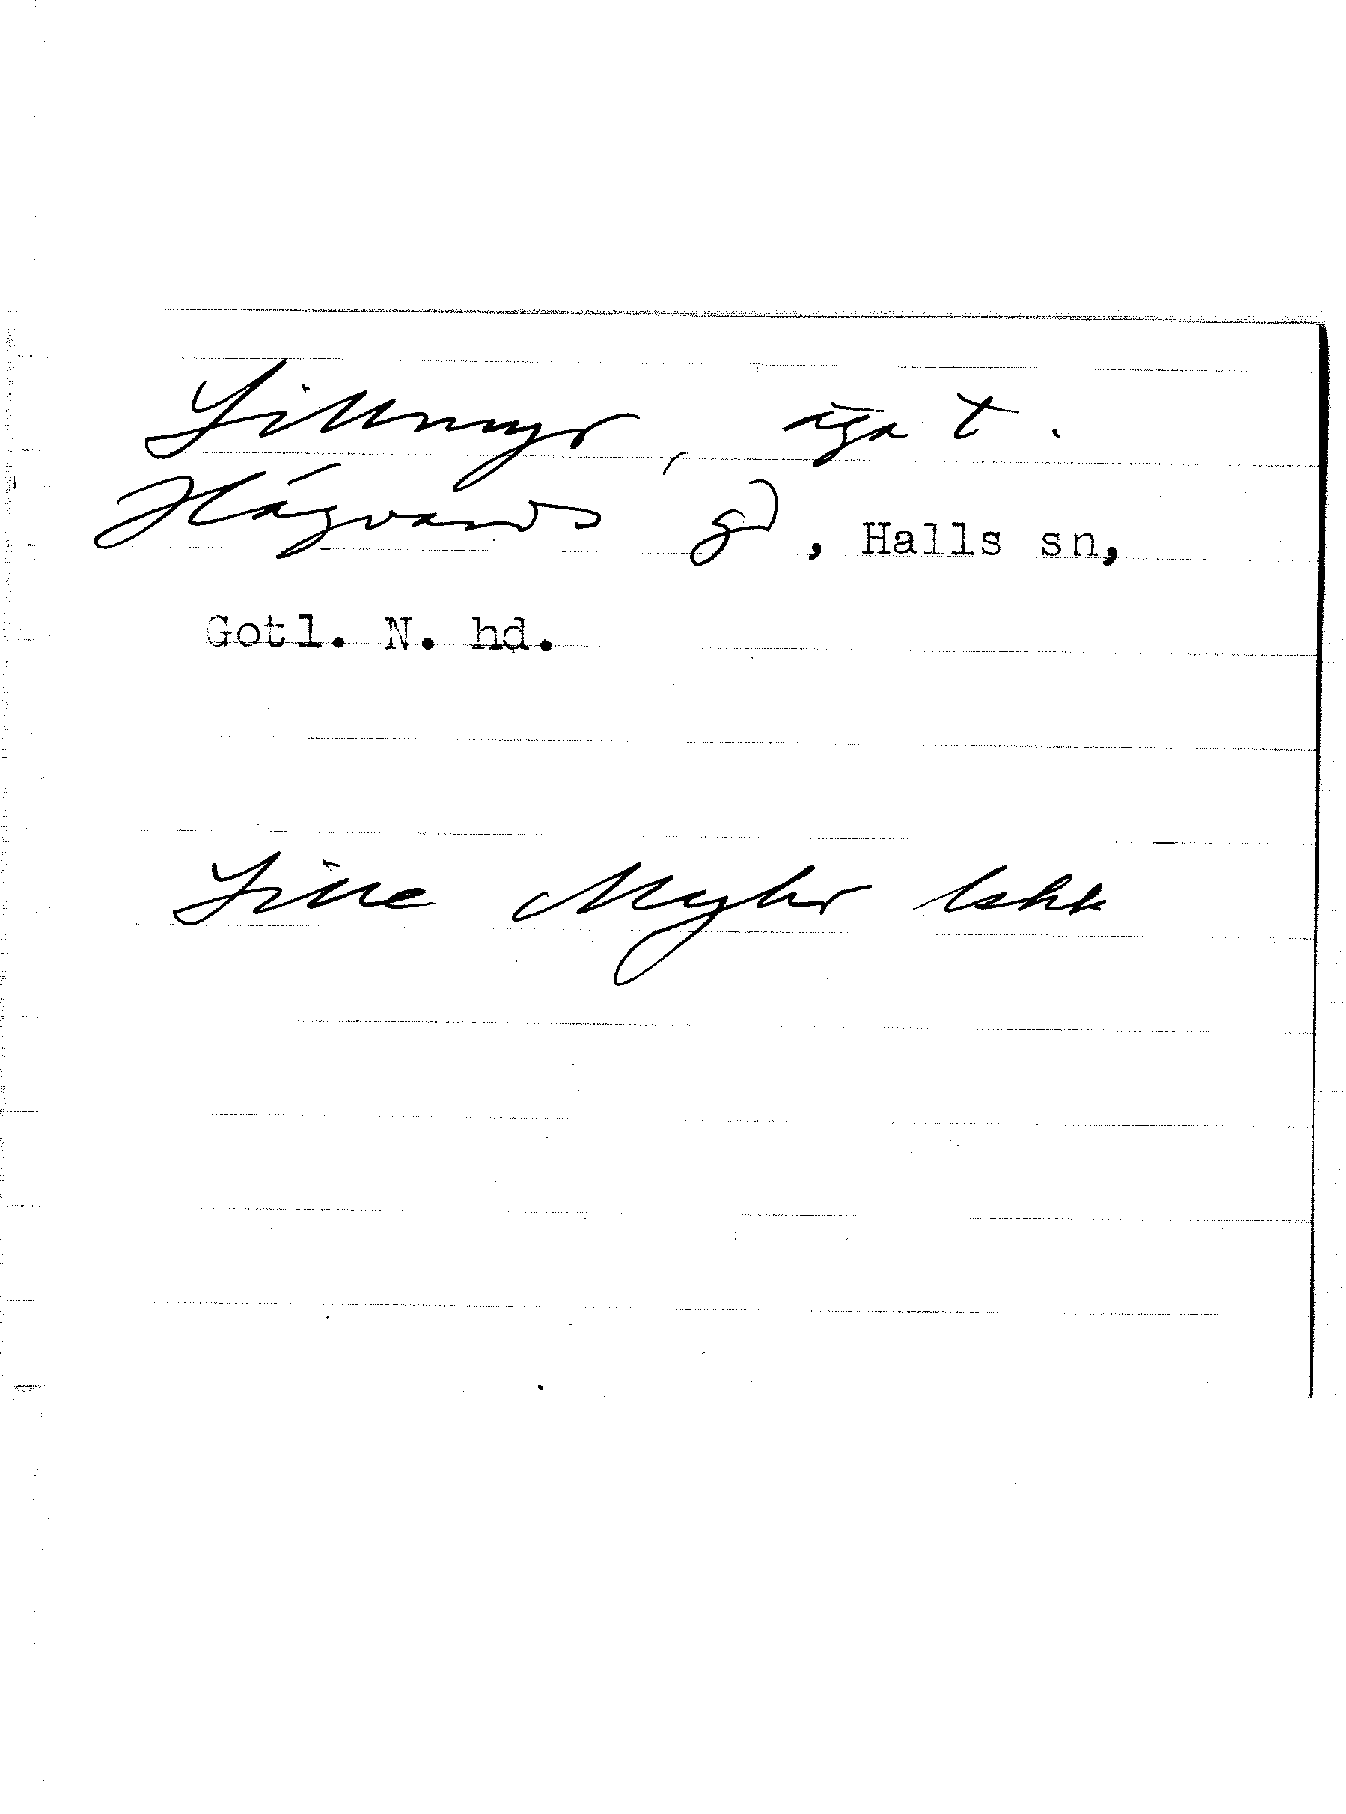 Lillmyr, äga t.
Hägvards gd, Halls sn,
Gotl. N. hd.
Lille Myhr Lskk